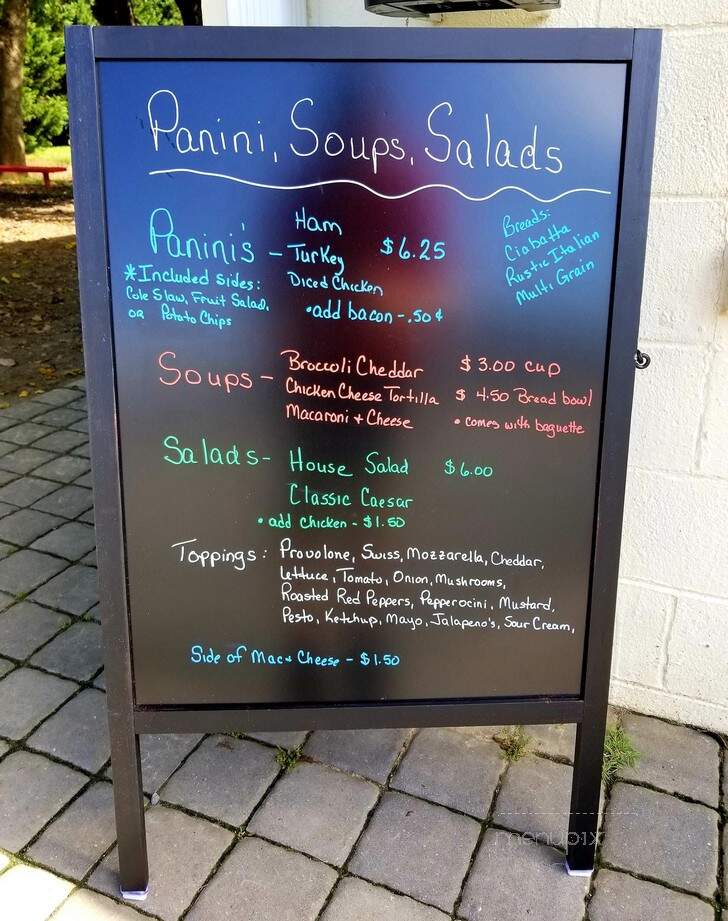 Panini, Soups, Salads
Panini's - Ham
Turkey $6.25
Diced Chicken
• add bacon - .50¢
*Included sides:
Cole Slaw, Fruit Salad,
or Potato Chips
Breads:
Ciabatta
Rustic Italian
Multi Grain
Soups - Broccoli Cheddar $3.00 cup
Chicken Cheese Tortilla $4.50 Bread bowl
Macaroni + Cheese • comes with baguette
Salads - House Salad $6.00
Classic Caesar
• add chicken - $1.50
Toppings: Provolone, Swiss, Mozzarella, Cheddar,
Lettuce, Tomato, Onion, Mushrooms,
Roasted Red Peppers, Pepperocini, Mustard,
Pesto, Ketchup, Mayo, Jalapeno's, Sour Cream,
Side of Mac + Cheese - $1.50
menupix